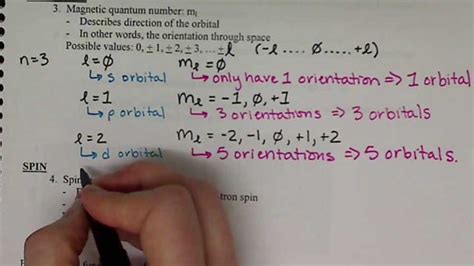 3. Magnetic quantum number: mℓ
- Describes direction of the orbital
- In other words, the orientation through space
Possible values: 0, ±1, ±2, ±3, ... ±ℓ (-ℓ .... ∅ .... +ℓ)
n=3 ℓ=∅ mℓ=∅
↳ s orbital ↳ only have 1 orientation ⇒ 1 orbital
ℓ=1 mℓ = -1, ∅, +1
↳ p orbital ↳ 3 orientations ⇒ 3 orbitals
ℓ=2 mℓ = -2, -1, ∅, +1, +2
↳ d orbital ↳ 5 orientations ⇒ 5 orbitals.
SPIN
4. Spin
- tron spin
-